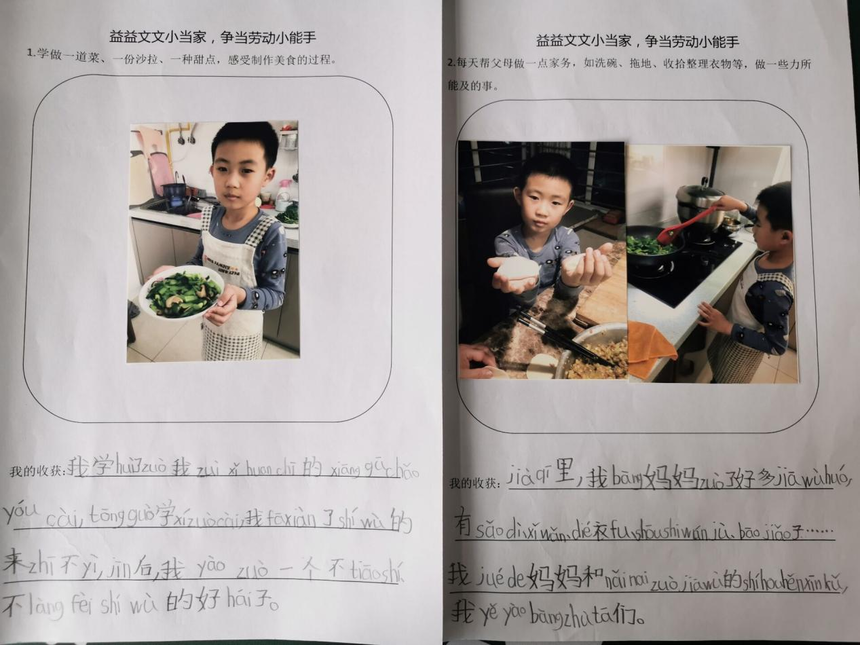 益益文文小当家，争当劳动小能手
1.学做一道菜、一份沙拉、一种甜点，感受制作美食的过程。
我的收获:我学huì zuò我zuì xǐ huan chī的xiāng gū chǎo
yóu cài, tōng guò学xí zuò cài,我fā xiàn了shí wù的
来zhī不yì, jīn后,我yào zuò一个不tiāo shí、
不làng fèi shí wù的好hái子。
益益文文小当家，争当劳动小能手
2.每天帮父母做一点家务，如洗碗、拖地、收拾整理衣物等，做一些力所
能及的事。
我的收获:jià qī里,我bāng妈妈zuò了好多jiā wù huó,
有sǎo dì、xǐ wǎn、dié衣fu、shōu shi wán jù、bāo jiǎo子……
我jué de妈妈和nǎi nai zuò jiā wù的shí hou hěn xīn kǔ,
我yě yào bāng zhù tā们。